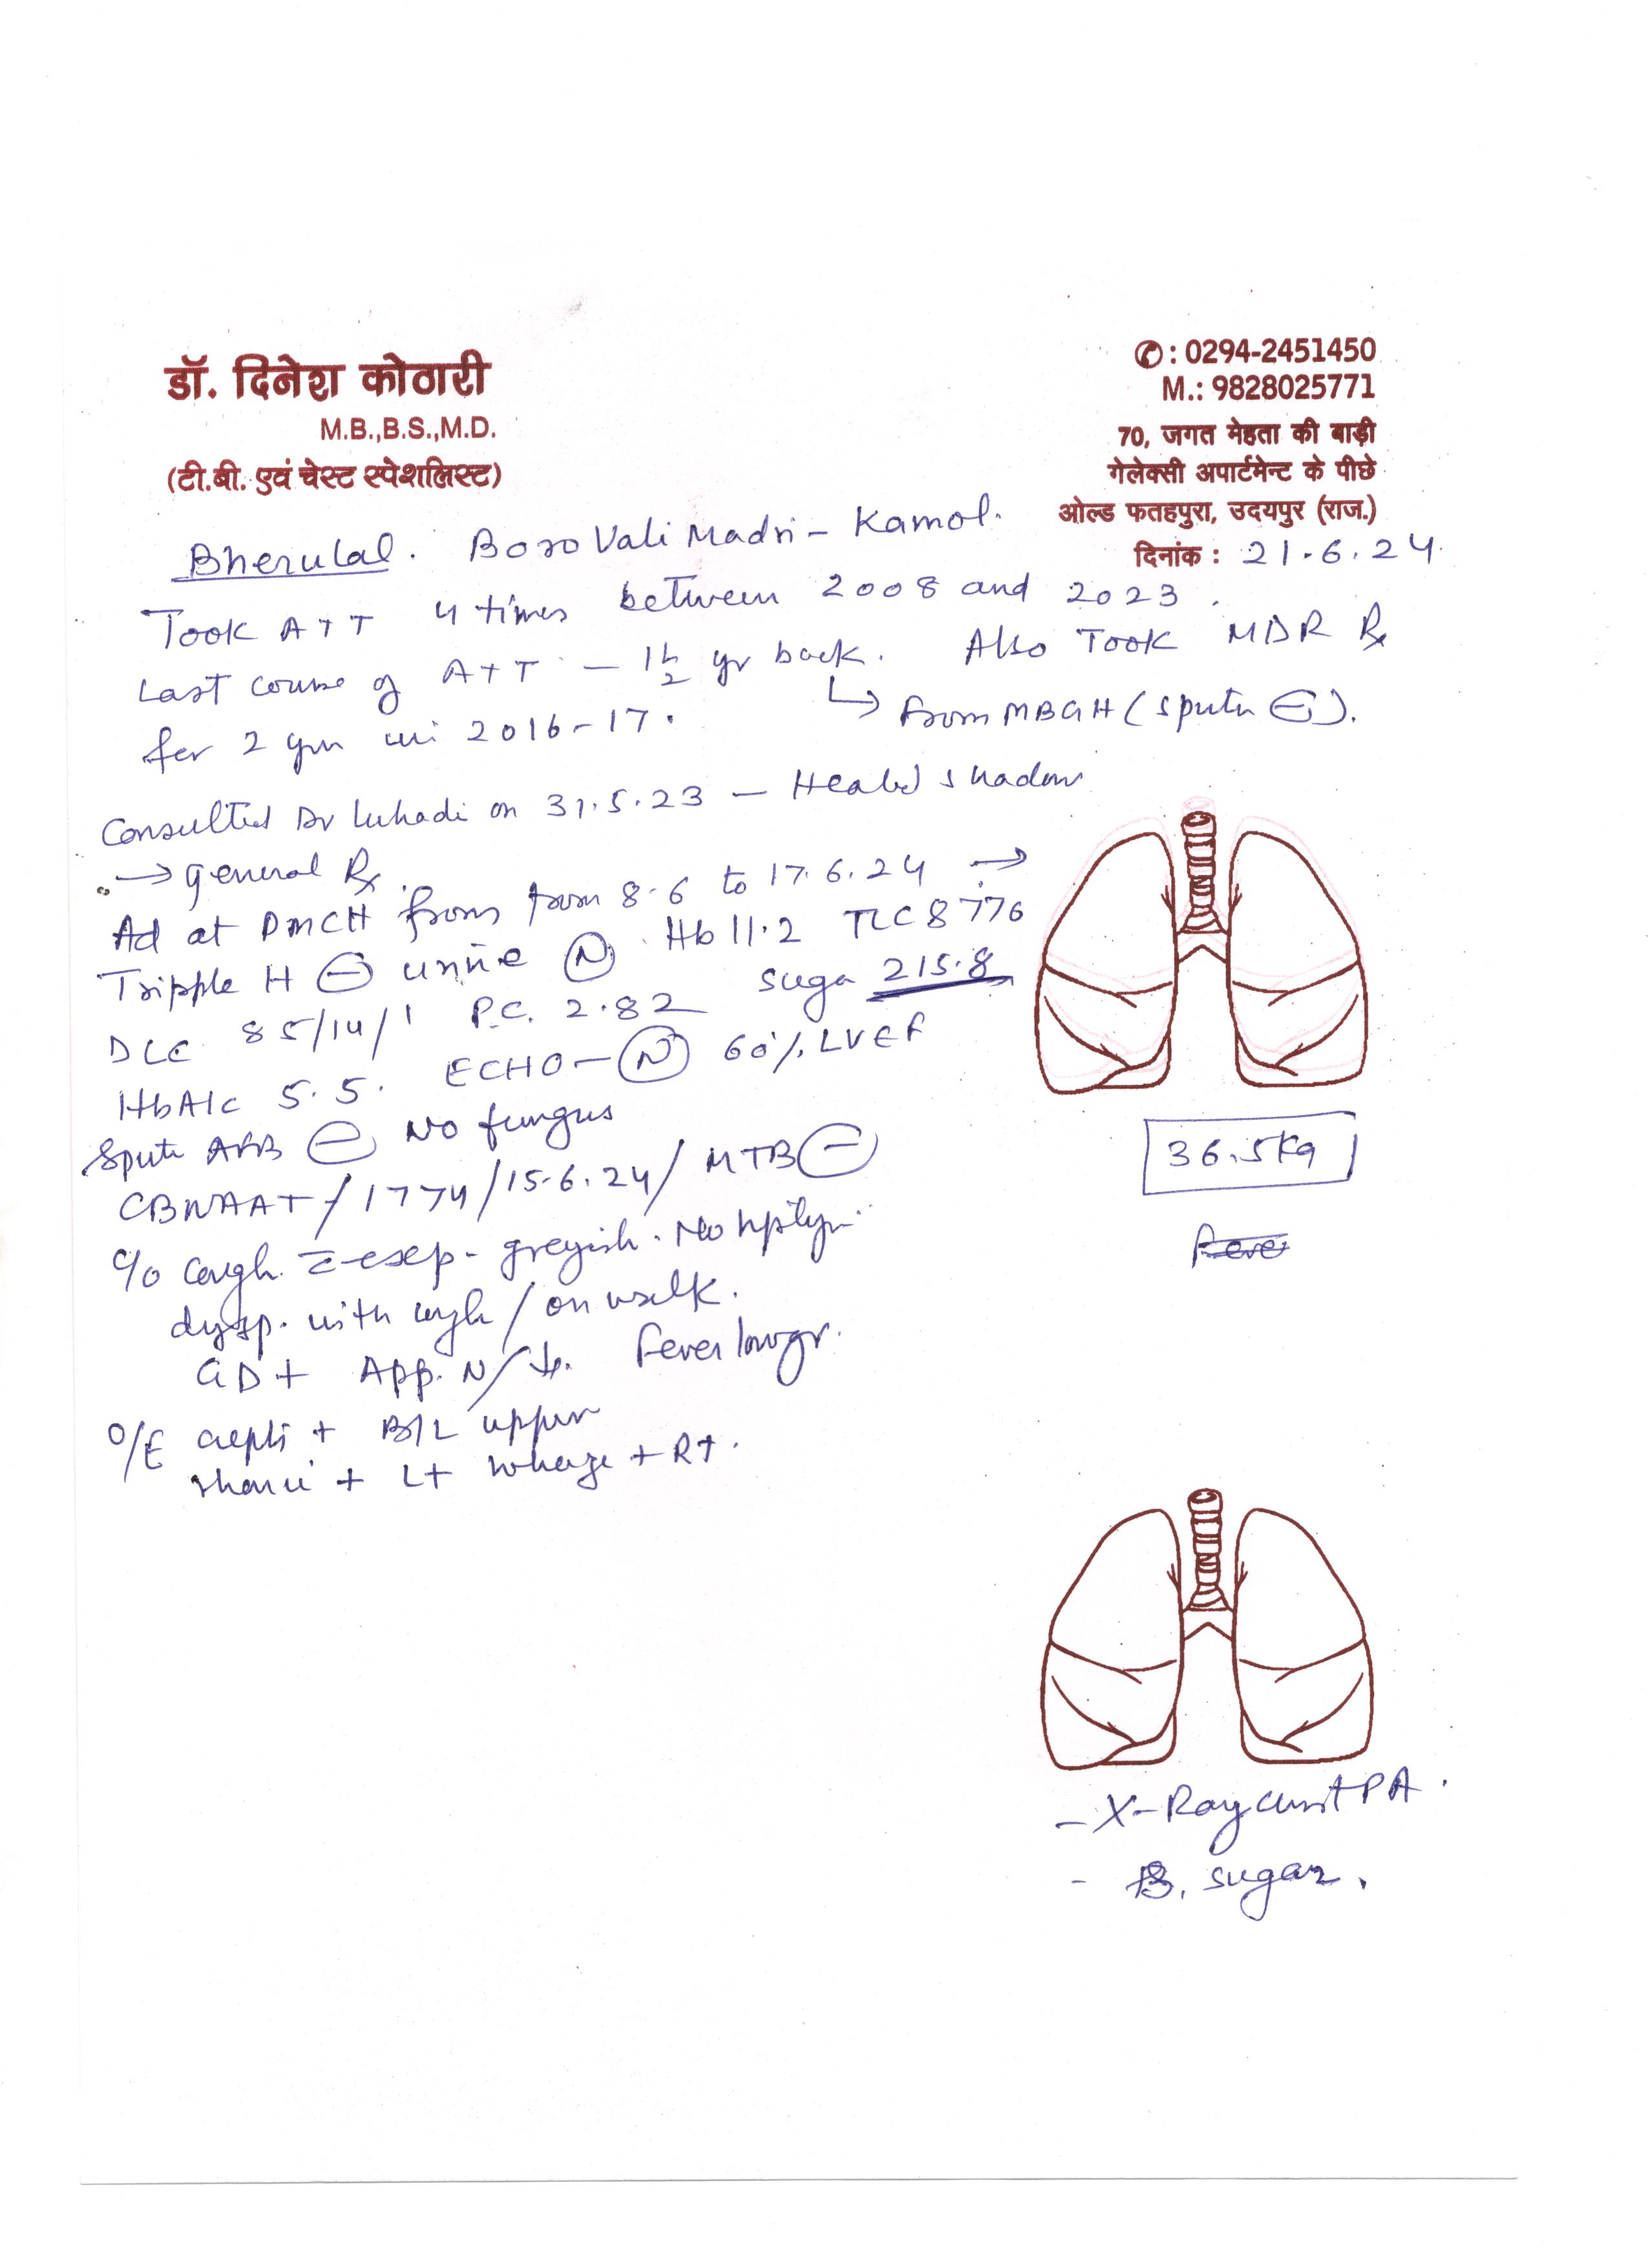 डॉ. दिनेश कोठारी
M.B.,B.S.,M.D.
(टी.बी. एवं चेस्ट स्पेशलिस्ट)
✆ : 0294-2451450
M.: 9828025771
70, जगत मेहता की बाड़ी
गेलेक्सी अपार्टमेन्ट के पीछे
ओल्ड फतहपुरा, उदयपुर (राज.)
दिनांक : 21.6.24
Bherulal. Boro Vali Madri - Kamol.
Took ATT 4 times between 2008 and 2023.
Last course of ATT - 1½ yr back. Also Took MDR Rx
for 2 in 2016-17. ↳ from MBGH (Sputm ⊖).
Consulted Dr Luhadi on 31.5.23 - Healed shadow
→ general Rx.
Ad at PMCH from from 8.6 to 17.6.24 →
Tripple H ⊖ urine Ⓝ. Hb 11.2 TLC 8776
DLC 85/14/1 P.C. 2.82 suga 215.8
HbA1c 5.5. ECHO - Ⓝ 60% LVEF
Sputm AFB ⊖ No fungus
CBNAAT / 1774 / 15-6.24 / MTB ⊖
c/o cough. c̄ exp - greyish. No
dysp. with cough / on walk.
GD+ App. N/↓. Fever low gr.
O/E crepts + B/L upper
rhonci + Lt wheeze + Rt.
36.5 Kg
Fever
- X-Ray chest PA.
- B. sugar.